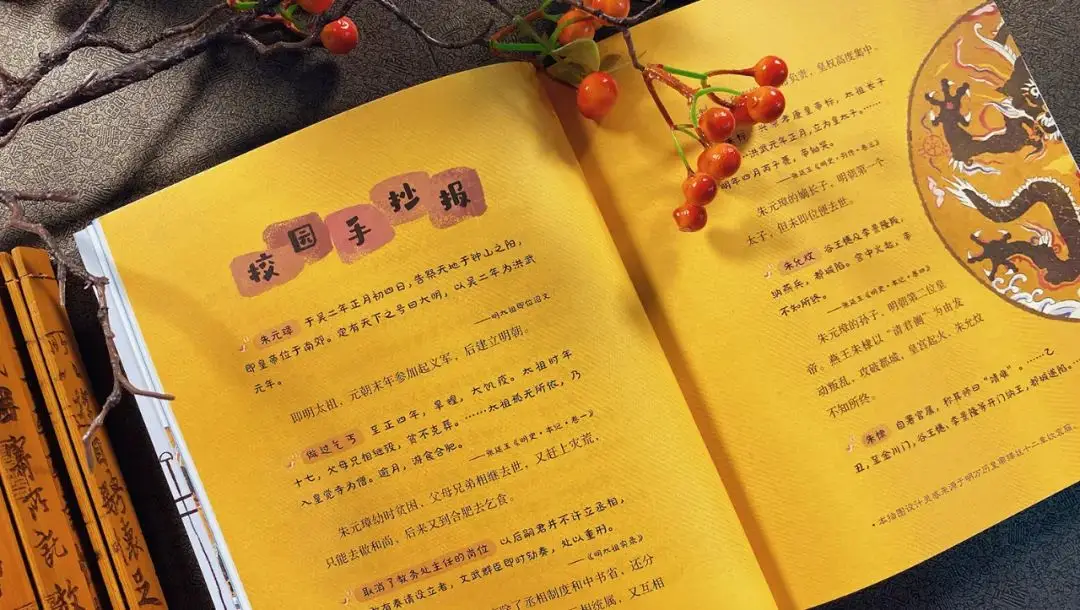 校园手抄报
朱元璋 于吴二年正月初四日，告祭天地于钟山之阳，
即皇帝位于南郊。定有天下之号曰大明，以吴二年为洪武
元年。
——明太祖即位诏文
即明太祖，元朝末年参加起义军，后建立明朝。
做过乞丐 至正四年，旱蝗，大饥疫。太祖时年
十七，父母兄相继殁，贫不克葬。……太祖孤无所依，乃
入皇觉寺为僧。逾月，游食合肥。
——张廷玉《明史·本纪·卷一》
朱元璋幼时贫困，父母兄弟相继去世，又赶上灾荒，
只能去做和尚，后来又到合肥去乞食。
取消了教务处主任的岗位 以后嗣君并不许立丞相，
有奏请设立者，文武群臣即时劾奏，处以重刑。
——《明太祖实录》
除了丞相制度和中书省，还分
相统属，又互相
负责，皇权高度集中。
标 兴宗孝康皇帝标，太祖长子
洪武元年正月，立为皇太子。……
明年四月丙子薨，帝恸哭。
——张廷玉《明史·列传·卷三》
朱元璋的嫡长子，明朝第一个
太子，但未即位便去世。
朱允炆 谷王橞及李景隆叛，
纳燕兵，都城陷。宫中火起，帝
不知所终。
——张廷玉《明史·本纪·卷四》
朱元璋的孙子，明朝第二位皇
帝。燕王朱棣以“清君侧”为由发
动叛乱，攻破都城，皇宫起火，朱允炆
不知所终。
朱棣 自署官属，称其师曰“靖难”。……乙
丑，至金川门，谷王橞、李景隆等开门纳王，都城遂陷。
·本绘图设计灵感来源于明万历皇帝缂丝十二章纹衮服。